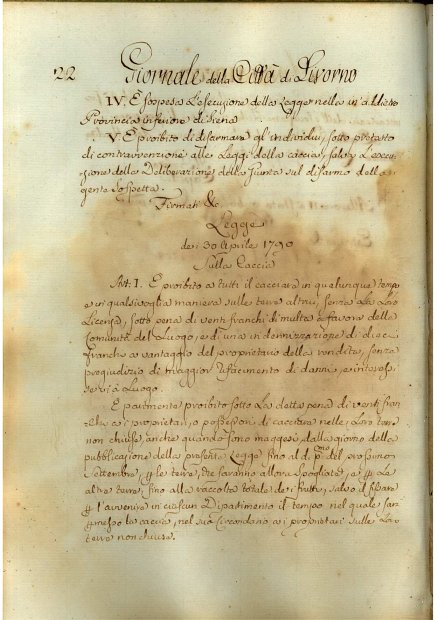 122 Giornale della Città di Livorno
IV. È sospesa l'esecuzione della Legge nella in addietro
Provincia inferiore di Siena
V. È proibito di disarmare gl'individui, sotto pretesto
di contravvenzione alle Leggi della caccia, salva l'eccez-
sione della Deliberazione della Giunta sul disarmo della
gente sospetta.
Firmati &c.
Legge
dei 30 Aprile 1790
Sulla Caccia
Art. I. È proibito a tutti il cacciare in qualunque tempo
e in qualsivoglia maniera sulle terre altrui, senza la loro
Licenza, sotto pena di venti franchi di multa a favore della
Comunità del Luogo, e di una indennizzazione di dieci
franchi a vantaggio del proprietario della rendita, senza
pregiudizio di maggior rifacimento di danni, e interessi
se vi è Luogo.
È parimente proibito sotto la detta pena di venti fran-
chi a i proprietari, o possessori di cacciare nelle loro terre
non chiuse, anche quando sono maggesi, dalla giorno della
pubblicazione della presente Legge fino al dì p.mo del prossimo
Settembre, p le terre, che saranno allora spogliate, e p le
altre terre, fino alla raccolta totale de i frutti, salvo il fissare
p l'avvenire in ciascun Dipartimento il tempo nel quale sarà
p messo la caccia, nel suo circondario a i proprietari sulle loro
terre non chiuse.